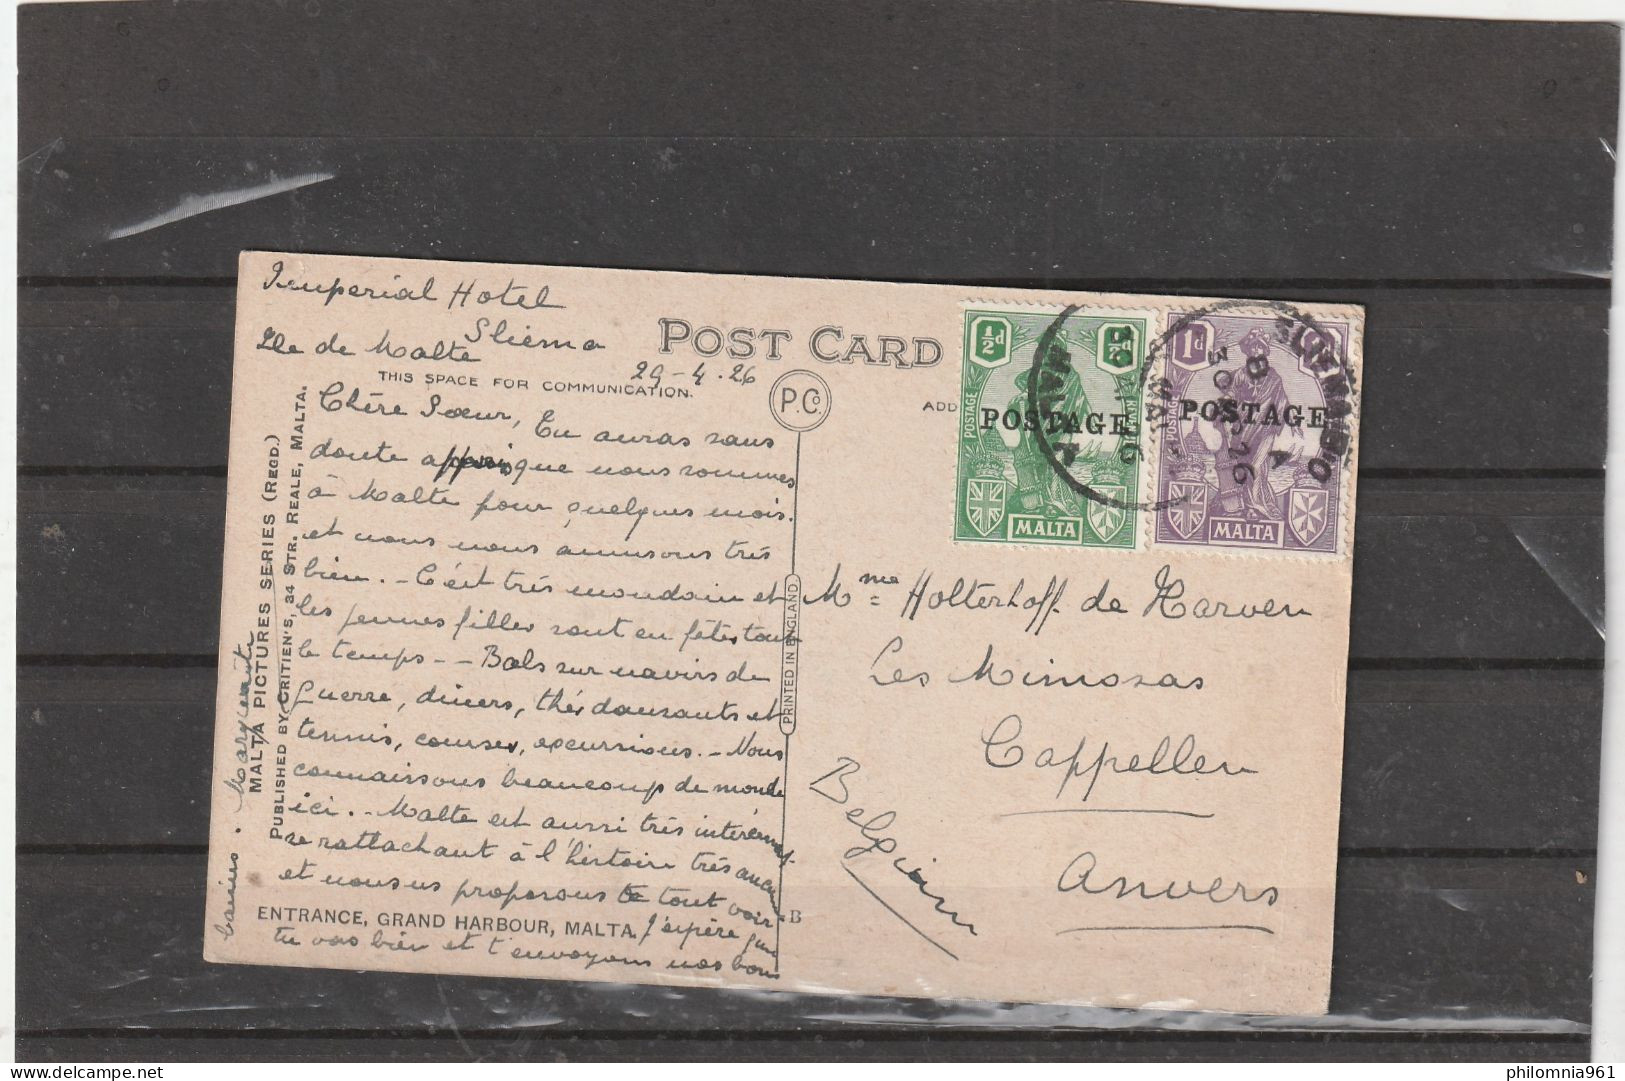 Imperial Hotel
Sliema
Ile de Malte
29-4-26
POST CARD
THIS SPACE FOR COMMUNICATION.
P.Co.
ADD
Chère Sœur, Tu auras sans
doute appris que nous sommes
à Malte pour quelques mois.
et nous nous amusons très
bien. - C'est très mondain et
les jeunes filles sont en fêtes tout
le temps - - Bals sur navires de
guerre, dîners, thés dansants et
tennis, courses, excursions. - Nous
connaissons beaucoup de monde
ici. - Malte est aussi très intéressant
se rattachant à l'histoire très
et nous nous proposons de tout voir
ENTRANCE, GRAND HARBOUR, MALTA.
J'espère que
tu vas bien et t'envoyons nos bons
baisers. Marguerite
MALTA PICTURES SERIES (REGD.)
PUBLISHED BY CRITIEN'S, 34 STR. REALE, MALTA.
PRINTED IN ENGLAND.
B
½d ½d
POSTAGE
POSTAGE REVENUE
MALTA
1d
POSTAGE
POSTAGE
MALTA
MALTA
8 A
30 26
Mme Holterhoff de Harven
Les Mimosas
Cappellen
Anvers
Belgium
delcampe.net
philomnia961